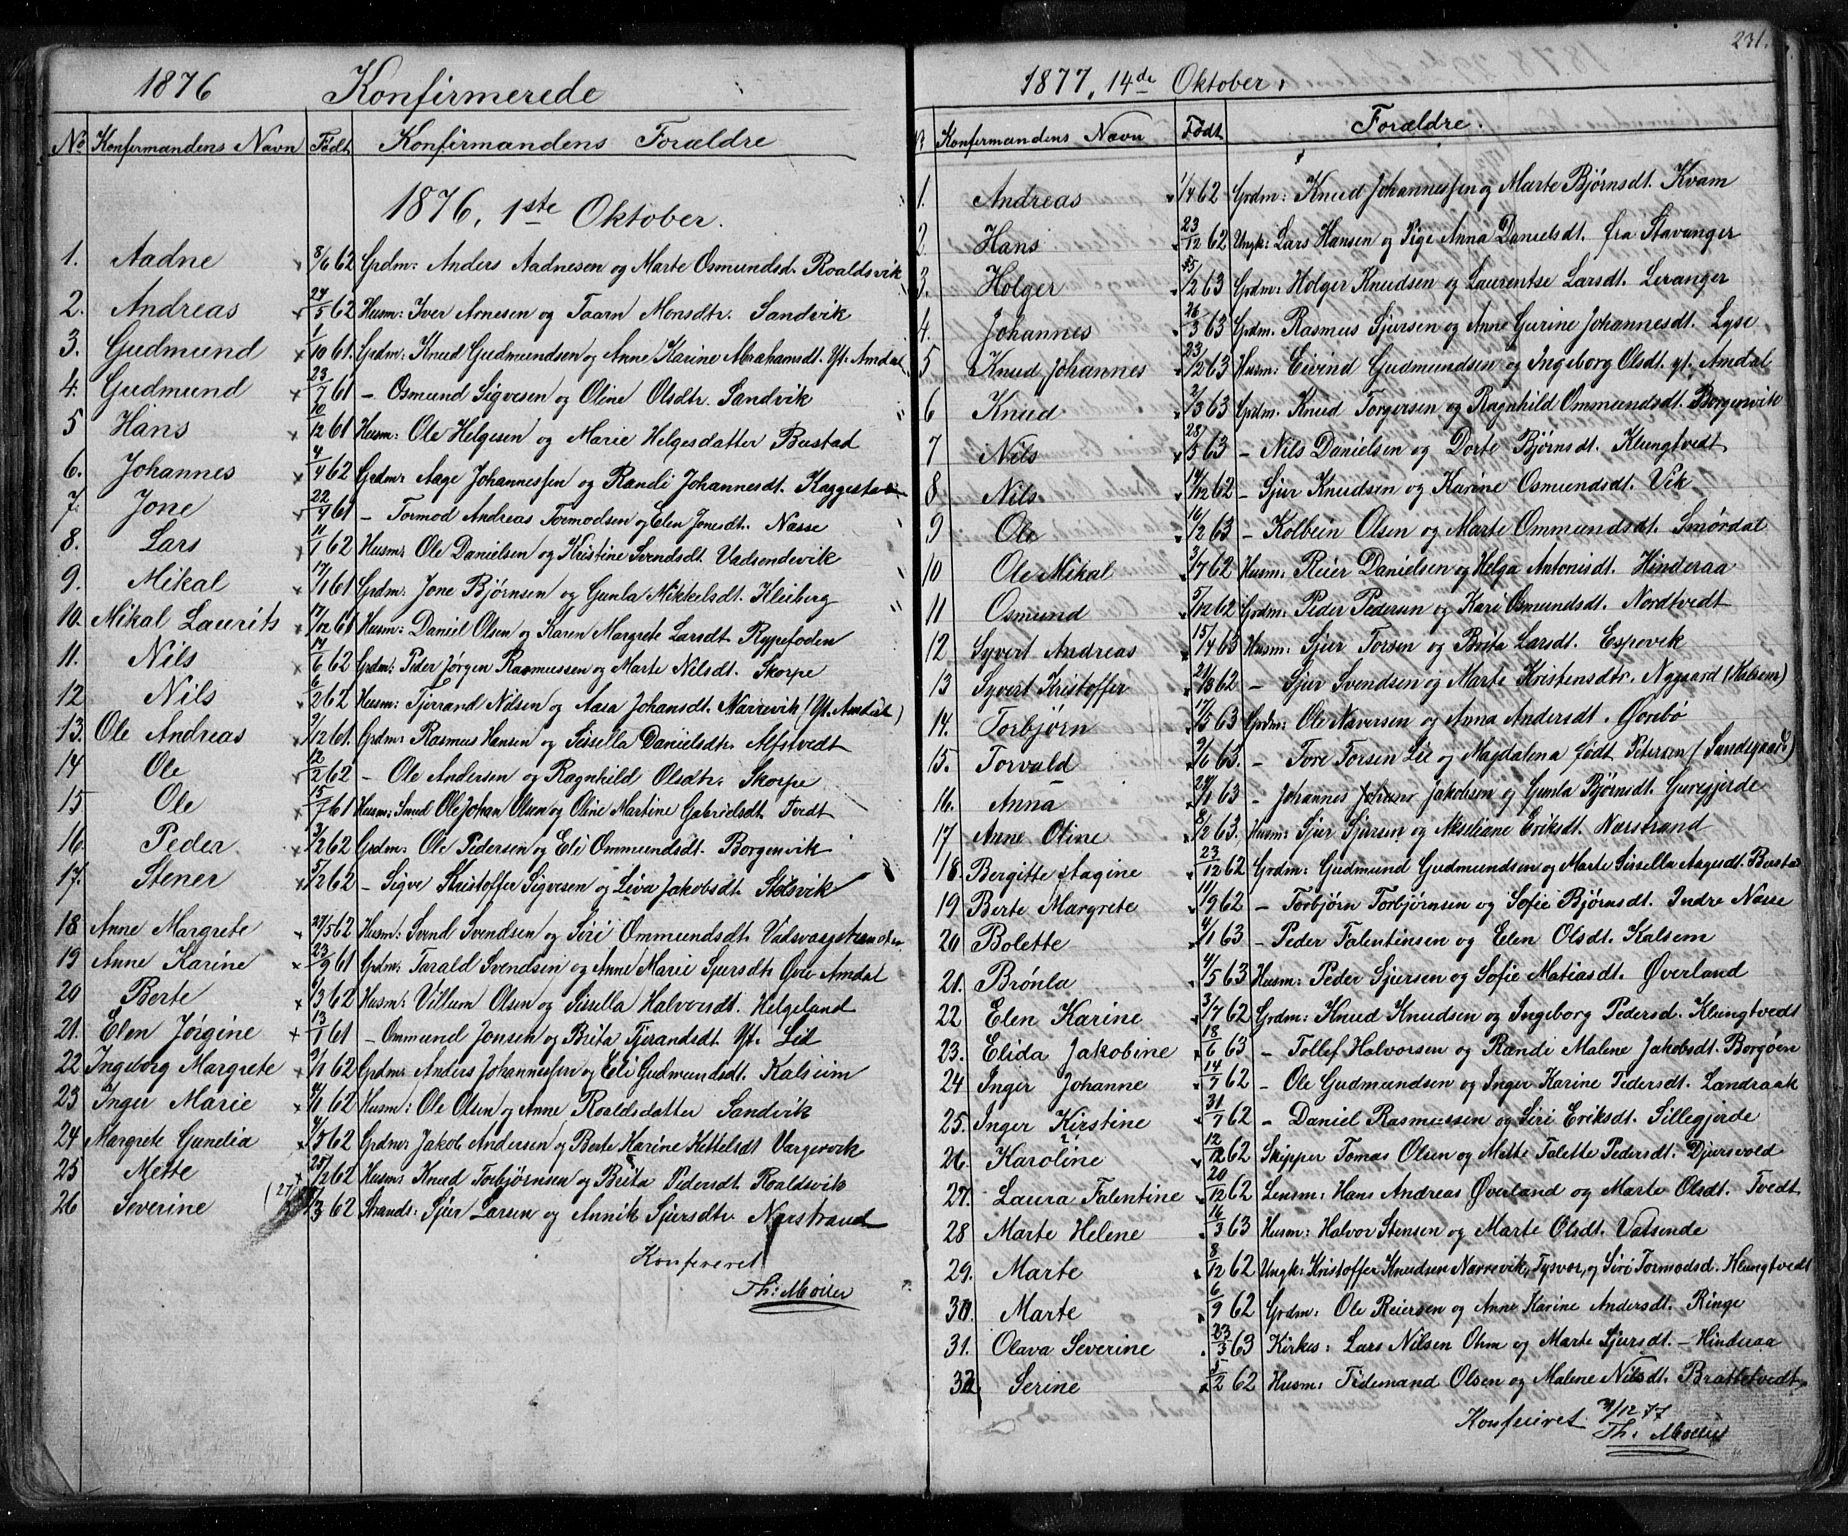 1876 Konfirmerede
No Konfirmandens Navn Født Konfirmandens Forældre
1876, 1ste Oktober.
1. Aadne 8/6 62 Grdm: Anders Aadnesen og Marte Osmundsd. Roaldsvik
2. Andreas 27/5 62 Husm: Iver Arnesen og Taarn Monsdtr. Sandvik
3. Gudmund 1/10 61. Grdm: Knud Gudmundsen og Anne Karine Abrahamsdt. Yt. Amdal
4. Gudmund 23/7 61 – Osmund Sigvesen og Oline Olsdtr. Sandvik
5 Hans 10/12 61 Husm: Ole Helgesen og Marie Helgesdatter Bustad
6. Johannes 4/4 62 Grdm: Aage Johannessen og Randi Johannesdt.
7. Jone 22/7 61 – Tormod Andreas Tormodsen og Elen Jonesdt. Næsse
8. Lars 11/1 62 Husm: Ole Danielsen og Kristine Svendsdt. Vadsendevik
9. Mikal 17/1 61 Grdm: Jone Bjørnsen og Gunla Mikkelsdt. Kleiberg
10. Mikal Laurits 17/12 61 Husm: Daniel Olsen og Karen Margrete Larsdt. Rypefoden
11. Nils 17/6 62 Grdm: Peder Jørgen Rasmussen og Marte Nilsdt. Skorpe
12 Nils 6/2 62 Husm: Tjerrand Nilsen og Aasa Johansdt. Narrevik (Yt. Amdal)
13. Ole Andreas 9/12 61. Grdm: Rasmus Hansen og Sissella Danielsdtr. Alfstvedt
14 Ole 12/2 62 – Ole Andersen og Ragnhild Olsdtr. Skorpe
15 Ole 15/7 61 Husm: Smed Ole Johan Olsen og Oline Martine Gabrielsdt. Tvedt
16. Peder 3/2 62 Grdm: Ole Pedersen og Eli Ommundsdt. Borgenvik
17. Stener 5/2 62 – Sigve Kristoffer Sigvesen og Liva Jakobsdt. Stølsvik
18 Anne Margrete 27/5 62 Husm: Svend Svendsen og Siri Ommundsdt.
19 Anne Karine 23/9 61 Grdm: Tarald Svendsen og Anne Marie Sjursdtr. Øvre Amdal
20 Berte 9/3 62 Husm: Villum Olsen og Sissella Halvorsdt. Helgeland
21. Elen Jørgine 13/1 61 – Ommund Jonsen og Brita Tjerandsdt. Yt. Lid
22 Ingeborg Margrete 2/1 62 Grdm: Anders Johannessen og Eli Gudmundsdt. Kalsem
23 Inger Marie 4/1 62 Husm: Ole Olsen og Anne Roaldsdatter Sandvik
24 Margrete Gundia 4/5 62 Grdm: Jakob Andersen og Berte Karine Kettelsdt Vargevik
25 Mette 25/12 62 Husm: Knud Torbjørnsen og Brita Pedersdt. Roaldsvik
26 Severine (27/3 62 Strands: Sjur Larsen og Annik Sjursdtr. Nærstrand
Konfereret
Th: Møller
231.
1877, 14de Oktober.
No Konfirmandens Navn Født Forældre.
1. Andreas 1/4 62 Grdm: Knud Johannessen og Marte Bjørnsdt. Kvam
2. Hans 23/12 62 Ungk: Lars Hansen og Pige Anna Danielsdt. fra Stavanger
3. Holger 15/2 63 Grdm: Holger Knudsen og Laurentse Larsdt. Leranger
4. Johannes 26/3 63 Grdm. Rasmus Sjursen og Anne Gurine Johannesdt. Lyse
5 Knud Johannes 23/12 63 Husm: Eivind Gudmundsen og Ingeborg Olsdt. yt. Amdal
6 Knud 2/3 63 Grdm. Knud Torgersen og Ragnhild Ommundsdt. Borgenvik
7 Nils 28/5 63 – Nils Danielsen og Dorte Bjørnsdt. Klungtvedt
8 Nils 14/12 62 – Sjur Knudsen og Karine Osmundsdt. Vik
9 Ole 16/2 63 – Kolbein Olsen og Marte Ommundsdt. Smørdal
10 Ole Mikal 3/7 62 Husm: Reier Danielsen og Helga Antonisdt. Hinderaa
11 Osmund 5/12 62 Grdm: Peder Pedersen og Kari Osmundsdt. Nordtvedt
12 Syvert Andreas 15/4 63 Husm: Sjur Torsen og Brita Larsdt. Espevik
13 Syvert Kristoffer 21/10 62 – Sjur Svendsen og Marte Kristensdtr. Nygaard (Kalsem)
14. Torbjørn 17/5 63 Grdm: Ole Naversen og Anna Andersdt. Øvrebø
15. Torvald 9/6 63. – Tore Torsen Lie og Magdalena født Petersen (Sandsgaard)
16. Anna 27/1 63 – Johannes Johans Jakobsen og Gunla Bjørnsdt. Guregjerde
17 Anne Oline 8/12 63. Husm: Sjur Sjursen og Akseliane Eriksdt. Nærstrand
18. Bergitte Aagine 23/12 62 Grdm: Gudmund Gudmundsen og Marte Sissella Aagesdt. Bustad
19 Berte Margrete 11/9 62 – Torbjørn Torbjørnsen og Sofie Bjørnsdt. Indre Næsse
20 Bolette 4/1 63 – Peder Falentinsen og Elen Olsdt. Kalsem
21. Brønla 4/5 63 Husm: Peder Sjursen og Sofie Matiasdt. Øverland
22 Elen Karine 3/7 62 Grdm: Knud Knudsen og Ingeborg Pedersd. Klungtvedt
23. Elida Jakobine 18/6 63 – Tollef Halvorsen og Randi Malene Jakobsdt. Borgøen
24 Inger Johanne 14/7 62 – Ole Gudmundsen og Inger Karine Pedersdt. Landraak
25. Inger Kirstine 31/7 62 – Daniel Rasmussen og Siri Eriksdt. Sillegjerde
26. Karoline 12/12 62 Skipper Tomas Olsen og Mette Talette Pedersdt. Djupsvold
27. Laura Falentine 20/12 62 Lensm: Hans Andreas Øverland og Marte Olsdt. Tvedt
28 Marte Helene 16/3 63 Husm: Halvor Stensen og Marte Olsdt. Vatsende
29. Marte 8/12 62 Ungk: Kristoffer Knudsen Narrevik, Tysvær, og Siri Tormodsd. Klungtvedt
30. Marte 6/9 62 Grdm: Ole Reiersen og Anne Karine Andersdt. Ringe
31. Olava Severine 23/3 63 Kirkes: Lars Nilsen Ohm og Marte Sjursdt. – Hinderaa
32 Serine 5/2 62 Husm: Tidemand Olsen og Malene Nilsdt. Brattetvedt
Konfereret 31/12 77
Th: Møller